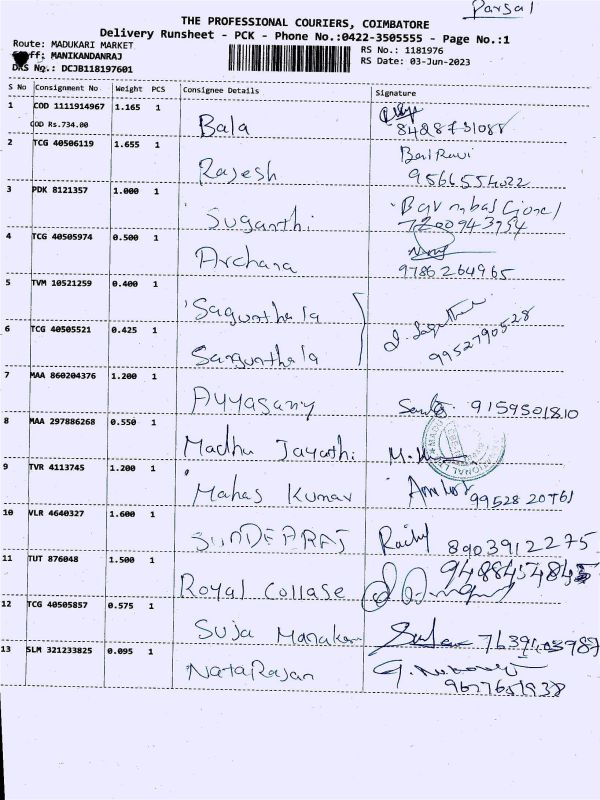 Parsal
THE PROFESSIONAL COURIERS, COIMBATORE
Delivery Runsheet - PCK - Phone No.:0422-3505555 - Page No.:1
Route: MADUKARI MARKET
RS No.: 1181976
MANIKANDANRAJ
RS Date: 03-Jun-2023
DRS No.: DCJB118197601
S No Consignment No Weight PCS Consignee Details Signature
1 COD 1111914967 1.165 1 Bala
COD Rs.734.00
2 TCG 40506119 1.655 1 Rajesh
9566554022
3 PDK 8121357 1.000 1 Suganthi
7200943754
4 TCG 40505974 0.500 1 Archana
9786264965
5 TVM 10521259 0.400 1 Sagunthala
6 TCG 40505521 0.425 1 Sargunthala
9952790528
7 MAA 860204376 1.200 1 Ayyasamy 9159501810
8 MAA 297886268 0.550 1 Madhu Jayathi
9 TVR 4113745 1.200 1 Mahas Kumar
10 VLR 4640327 1.600 1 SUNDEPRAJ 8903912275
11 TUT 876048 1.500 1 Royal Collase
12 TCG 40505857 0.575 1 Suja
13 SLM 321233825 0.095 1 NataRajan